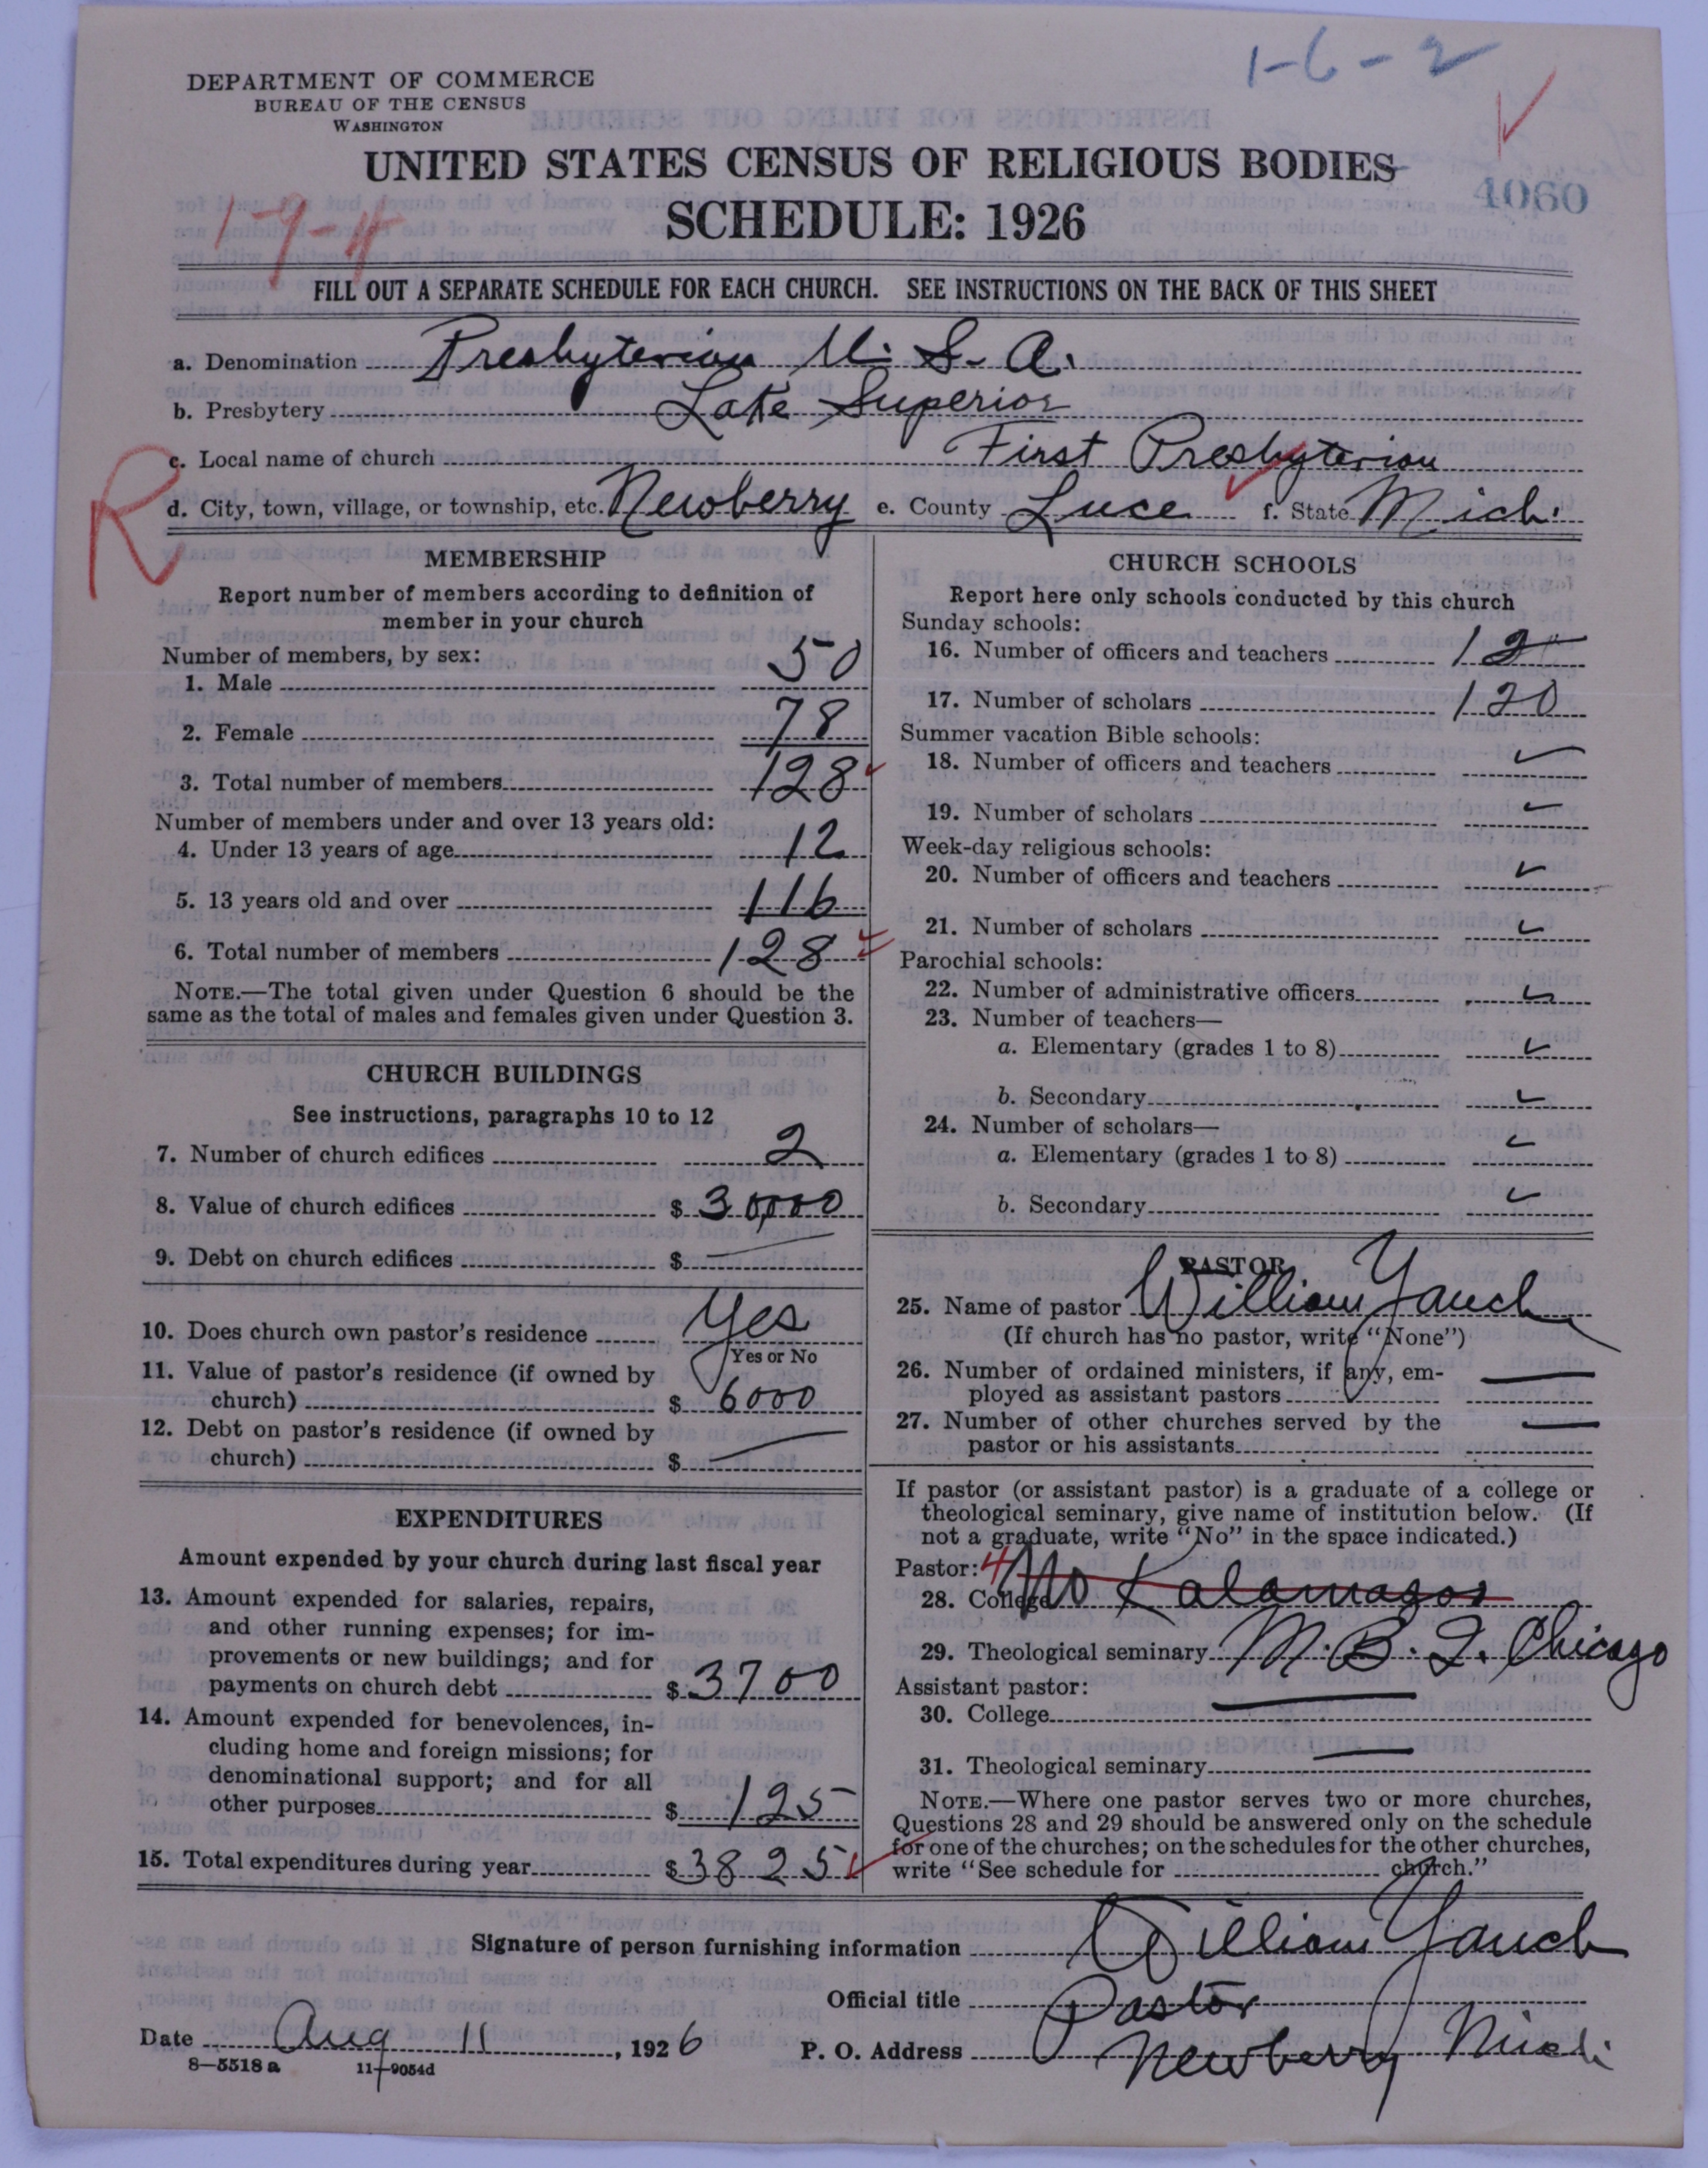 1-6-2
DEPARTMENT OF COMMERCE
BUREAU OF THE CENSUS
WASHINGTON
UNITED STATES CENSUS OF RELIGIOUS BODIES
4060
1-9-4
SCHEDULE: 1926
FILL OUT A SEPARATE SCHEDULE FOR EACH CHURCH. SEE INSTRUCTIONS ON THE BACK OF THIS SHEET
a. Denomination Presbyterian U. S. A.
b. Presbytery Lake Superior
c. Local name of church First Presbyterian
R
d. City, town, village, or township, etc. Newberry e. County Luce f. State Mich.
MEMBERSHIP
Report number of members according to definition of
member in your church
Number of members, by sex:
1. Male 50
2. Female 78
3. Total number of members 128
Number of members under and over 13 years old:
4. Under 13 years of age 12
5. 13 years old and over 116
6. Total number of members 128
NOTE.—The total given under Question 6 should be the
same as the total of males and females given under Question 3.
CHURCH BUILDINGS
See instructions, paragraphs 10 to 12
7. Number of church edifices 2
8. Value of church edifices $ 30,000
9. Debt on church edifices $
10. Does church own pastor's residence Yes
Yes or No
11. Value of pastor's residence (if owned by
church) $ 6000
12. Debt on pastor's residence (if owned by
church) $
EXPENDITURES
Amount expended by your church during last fiscal year
13. Amount expended for salaries, repairs,
and other running expenses; for im-
provements or new buildings; and for
payments on church debt $ 3700
14. Amount expended for benevolences, in-
cluding home and foreign missions; for
denominational support; and for all
other purposes $ 125
15. Total expenditures during year $ 3825
CHURCH SCHOOLS
Report here only schools conducted by this church
Sunday schools:
16. Number of officers and teachers 12
17. Number of scholars 120
Summer vacation Bible schools:
18. Number of officers and teachers
19. Number of scholars
Week-day religious schools:
20. Number of officers and teachers
21. Number of scholars
Parochial schools:
22. Number of administrative officers
23. Number of teachers—
a. Elementary (grades 1 to 8)
b. Secondary
24. Number of scholars—
a. Elementary (grades 1 to 8)
b. Secondary
PASTOR
25. Name of pastor William Yauch
(If church has no pastor, write "None")
26. Number of ordained ministers, if any, em-
ployed as assistant pastors
27. Number of other churches served by the
pastor or his assistants
If pastor (or assistant pastor) is a graduate of a college or
theological seminary, give name of institution below. (If
not a graduate, write "No" in the space indicated.)
Pastor: 4
28. College No Kalamazoo
29. Theological seminary M. B. I. Chicago
Assistant pastor:
30. College
31. Theological seminary
NOTE.—Where one pastor serves two or more churches,
Questions 28 and 29 should be answered only on the schedule
for one of the churches; on the schedules for the other churches,
write "See schedule for church."
Signature of person furnishing information William Yauch
Official title Pastor
Date Aug 11, 1926 P. O. Address Newberry Mich.
8—5518 a 11—9054d